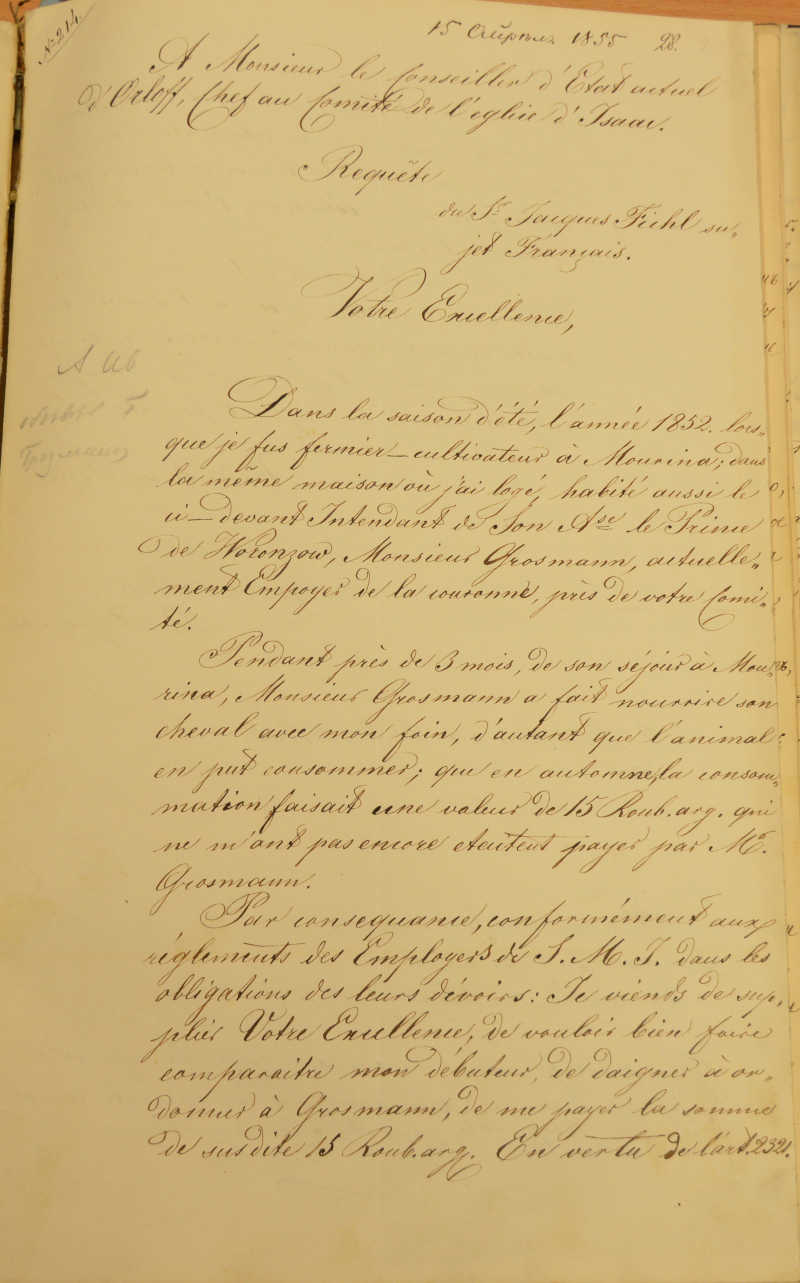 № 214.
15 Апреля 1855 28.
A Monsieur le Conseiller d'Etat actuel
d'Orloff, Chef au Comité de l'eglise d'Isaac.
Requête
du Sr. Jacques Fiehl su-
jet Français.
Votre Excellence,
Dans la saison d'été, l'année 1852. lors-
que je fus fermier-cultivateur à Mourina; dans
la même maison où j'ai logé, habité aussi le
ci-devant Intendant de Son Ase le Prince
de Woronzow, Monsieur Grosmann, actuelle-
ment Empoyer de la couronne, près de votre Comi-
té.
Pendant près de 3 mois, de son séjour à Mou-
rina, Monsieur Grosmann a fait nourrire son
cheval avec mon foin, d'autant que l'animal
en put consommer; que en automne, la consom-
mation faisait une valeur de 15 Roub. arg. qui
ne m'ont pas encore etaitent payer par Mr.
Grosmann.
Par consequance, conformément aux
réglements des Employers de S. M. I. dans les
obligations des leurs dévoirs: Je viends de sup-
plier Votre Excellence, de vouloir bien faire
comparaitre mon débuteur, de daigner à or-
donner à Grosmann, de me payer la somme
de susdite 15 Roub. arg. En vertu de l'art. 2321.